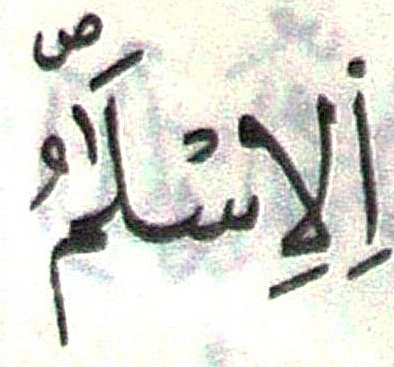 اِلاِسْلَٰمُ ص